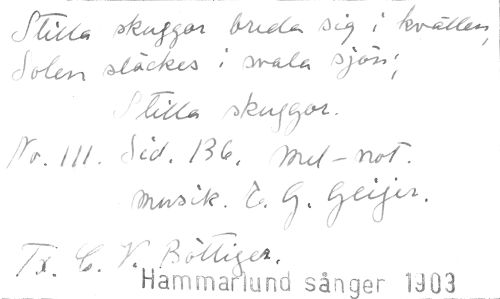 Stilla skuggor breda sig i kvällen,
Solen släckes i svala sjön;
Stilla skuggor.
No. 111. Sid. 136. mel-not.
musik. E. G. Geijer.
Tx. C. V. Böttiger.
Hammarlund sånger 1903